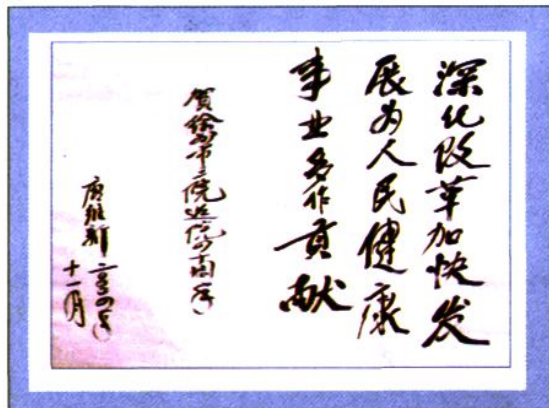 深化改革加快发
展为人民健康
事业多作贡献
贺徐州市院建院周年
唐维新 二〇〇四年
十一月